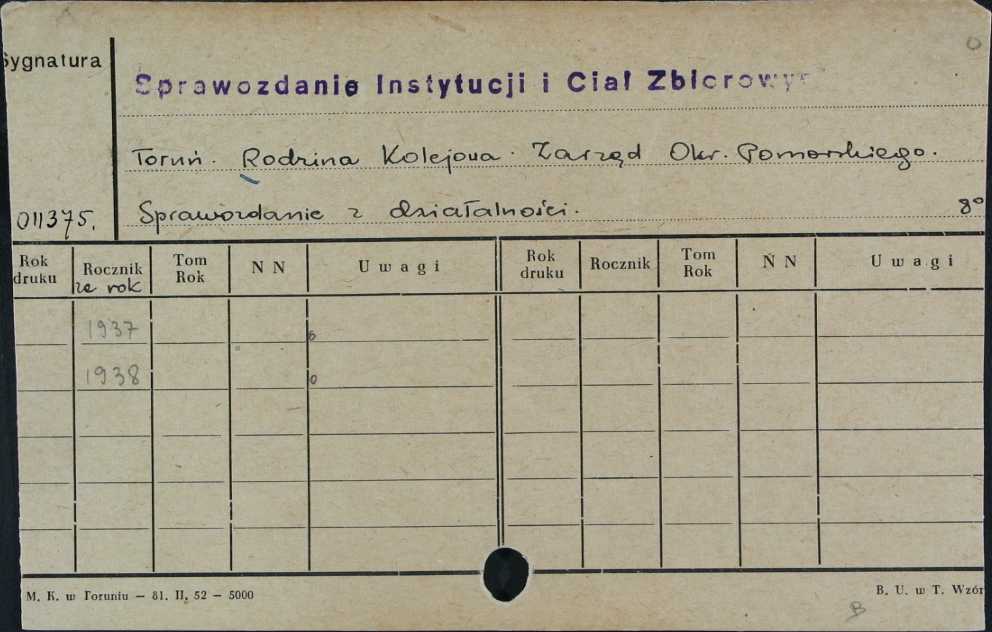 Sygnatura
Sprawozdanie Instytucji i Ciał Zbiorowy
Toruń. Rodzina Kolejowa. Zarząd Okr. Pomorskiego.
011375. Sprawozdanie z działalności. 8°
Rok druku Rocznik za rok Tom Rok N N Uwagi Rok druku Rocznik Tom Rok N N Uwagi
1937 o
1938 o
M. K. w Toruniu — 81. II. 52 — 5000 B. U. w T. Wzór
B